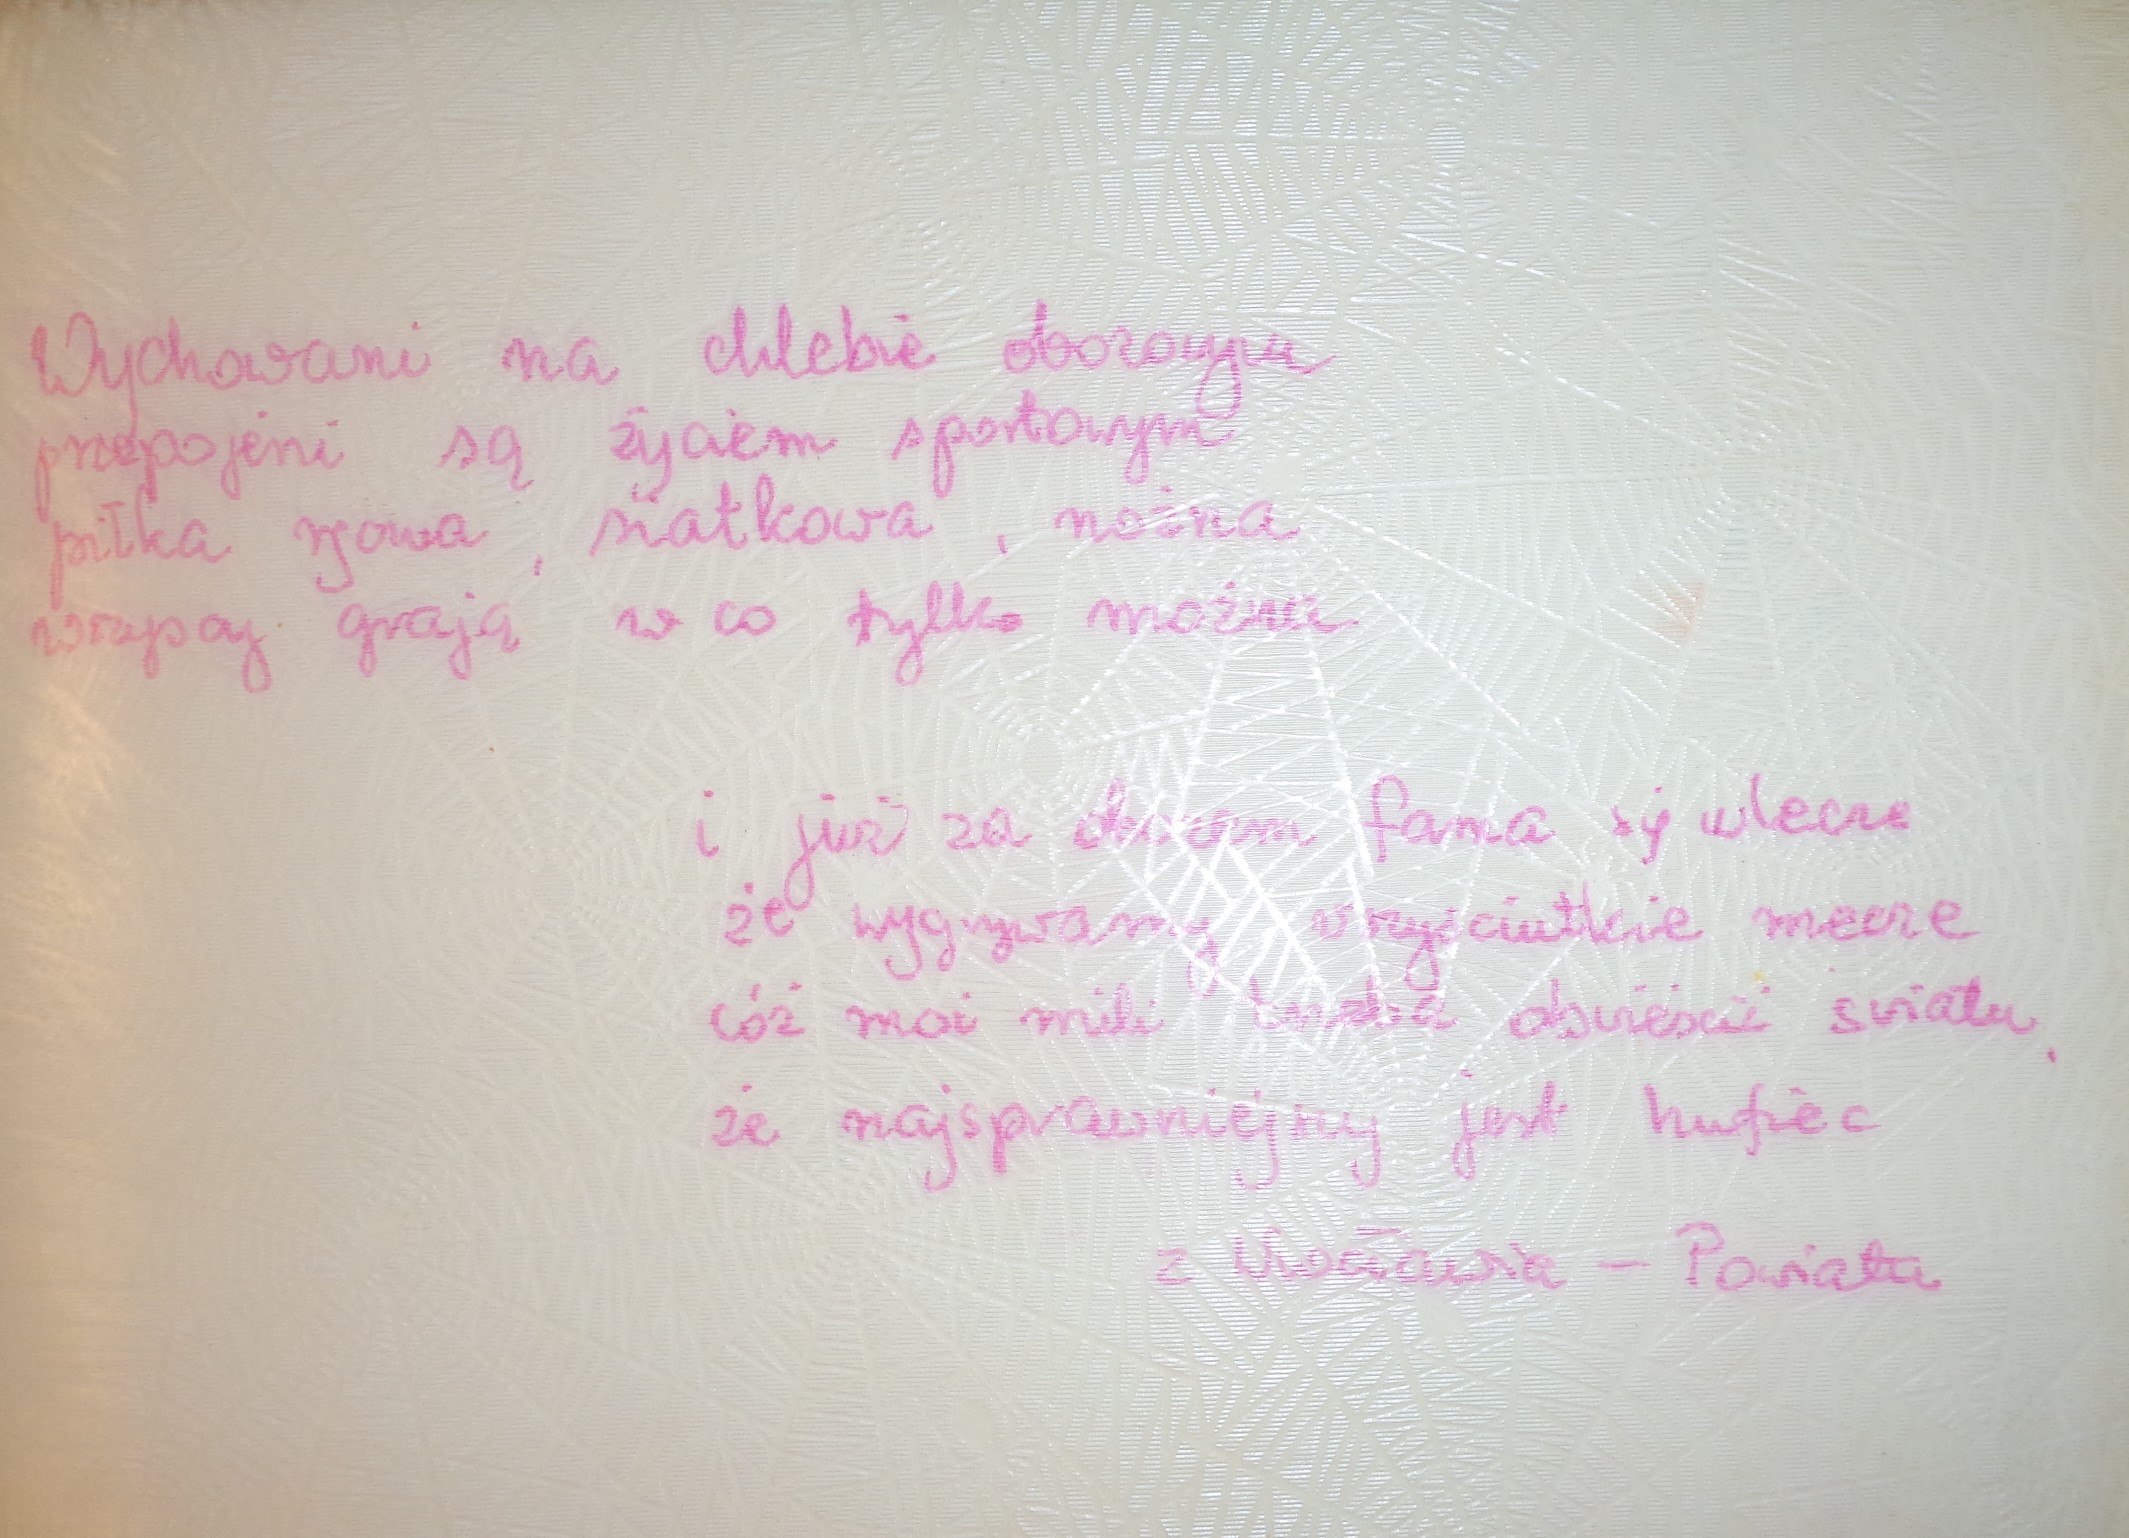 Wychowani na chlebie obozowym
przepojeni są życiem sportowym
piłka , siatkowa , nożna
wszyscy grają w co tylko można.
i już za obozem fama się wlecze
że wygrywamy wszyściutkie mecze
cóż moi mili trzeba obwieścić światu,
że najsprawniejszy jest hufiec
z Wrocławia - Powiatu